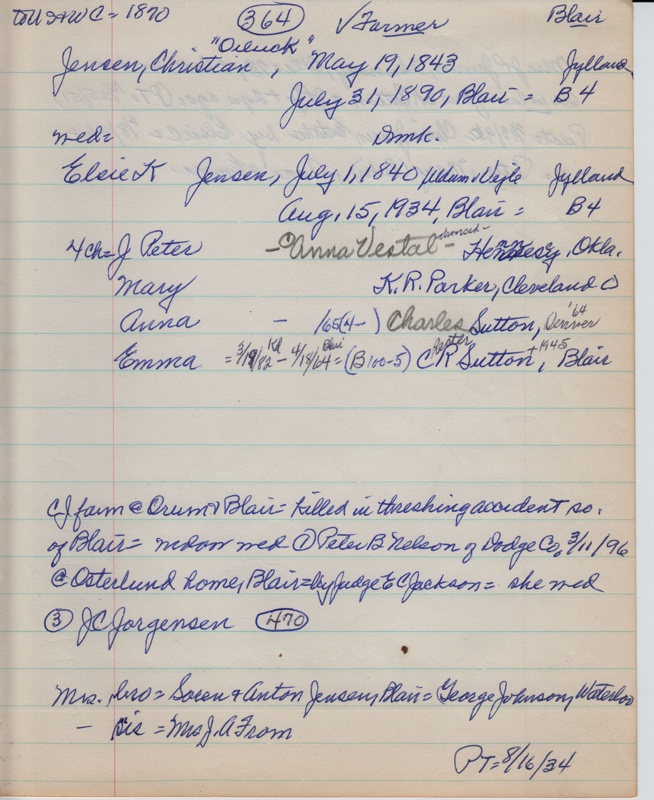 to USA+WC = 1870 364 √ Farmer Blair
Jensen, Christian "Oluck", May 19, 1843 Jylland
July 31, 1890, Blair = B4
med= Dmk.
Elsie K Jensen, July 1, 1840 Udum Vejle Jylland
Aug, 15, 1934, Blair = B4
4ch= J Peter - Anna Vestal - Hennesey, Okla.
Mary K.R. Parker, Cleveland O
Anna - 165(4-) Charles Sutton, Denver '64
Emma = 3/19/82 Kd - 4/18/64 Blair = (B100-5) CR Sutton +1945, Blair
CJ farm @ Orum & Blair = Killed in threshing accident so.
of Blair = widow med ② Peter B Nelson of Dodge Co, 3/11/96
@ Osterlund home, Blair = by Judge E C Jackson = she med
③ JC Jorgensen 470
Mrs. bro = Soren & Anton Jensen, Blair = George Johnson, Waterloo
- sis = Mrs J. A From
PT = 8/16/34